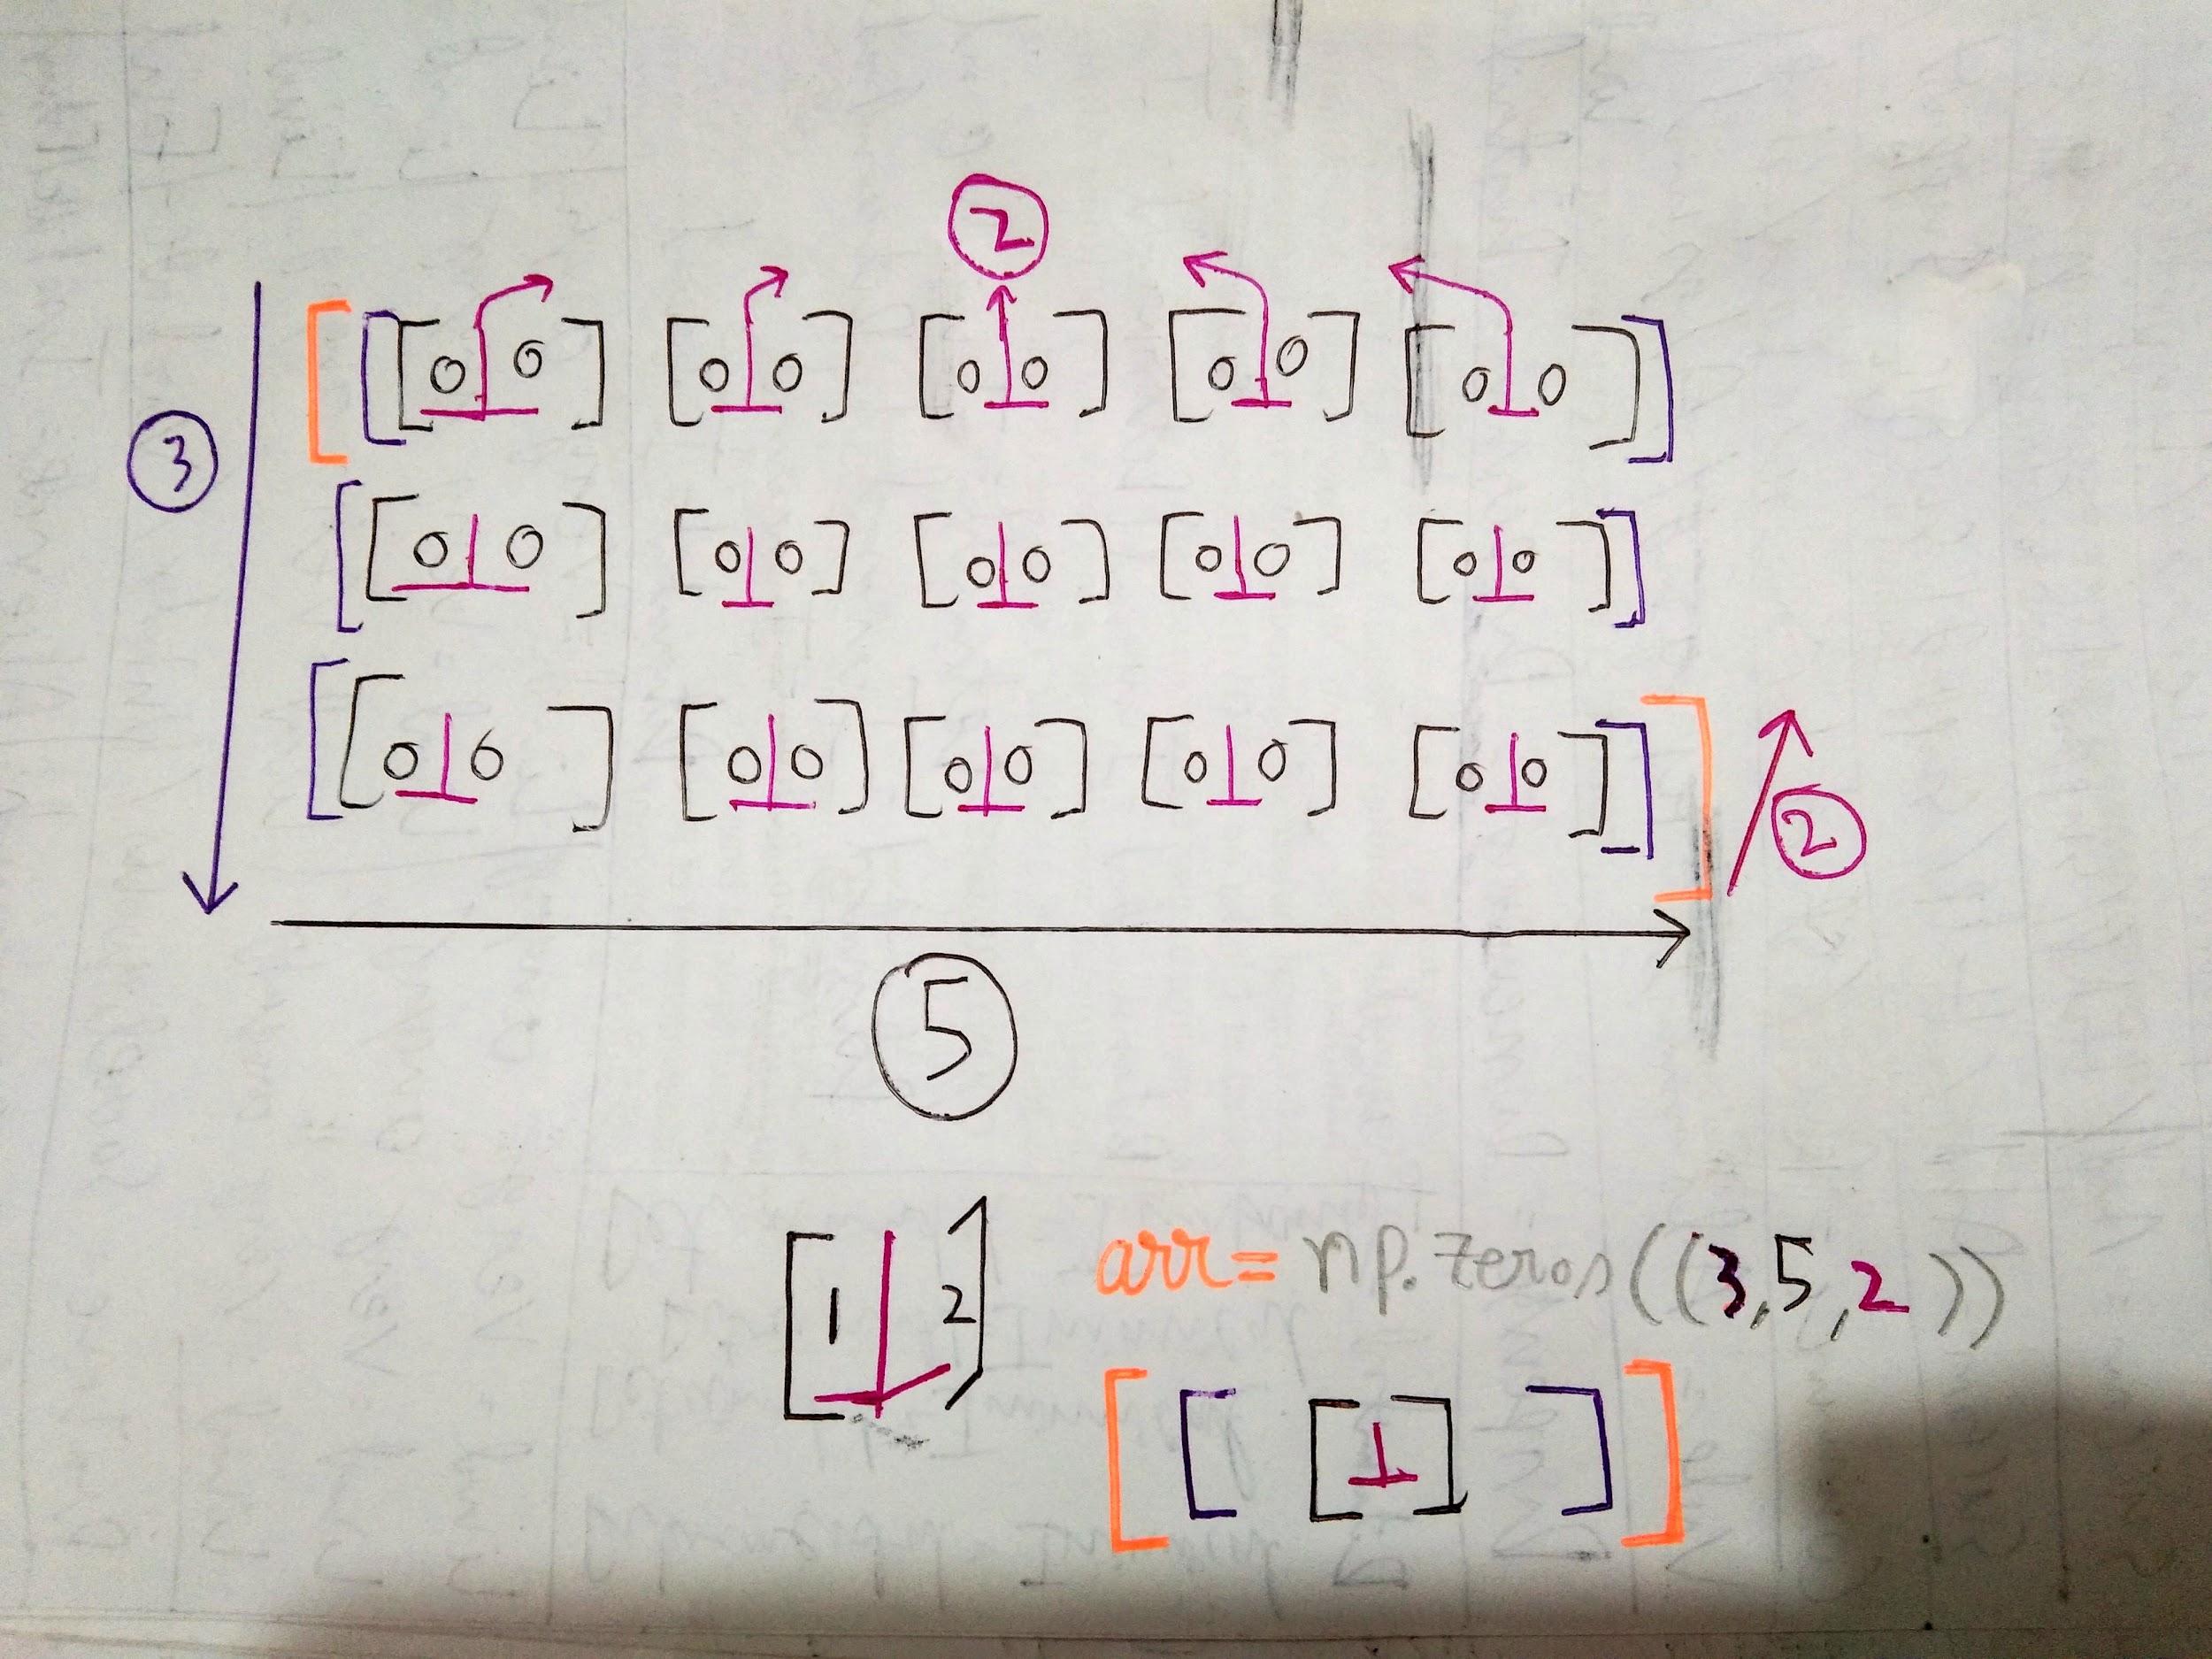 2
[ [ [ 0 0 ] [ 0 0 ] [ 0 0 ] [ 0 0 ] [ 0 0 ] ]
3
[ [ 0 0 ] [ 0 0 ] [ 0 0 ] [ 0 0 ] [ 0 0 ] ]
[ [ 0 0 ] [ 0 0 ] [ 0 0 ] [ 0 0 ] [ 0 0 ] ] ]
2
5
[ 1 2 ]
arr = np.zeros((3,5,2))
[ [ [ ] ] ]